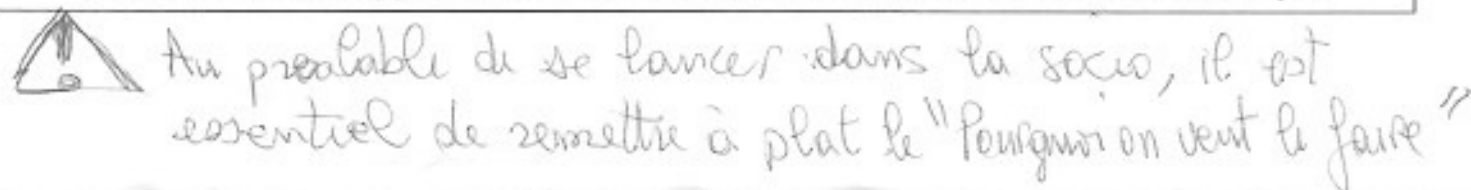 Au prealable de se lancer dans la socio, il est
essentiel de remettre à plat le "Pourquoi on veut le faire"